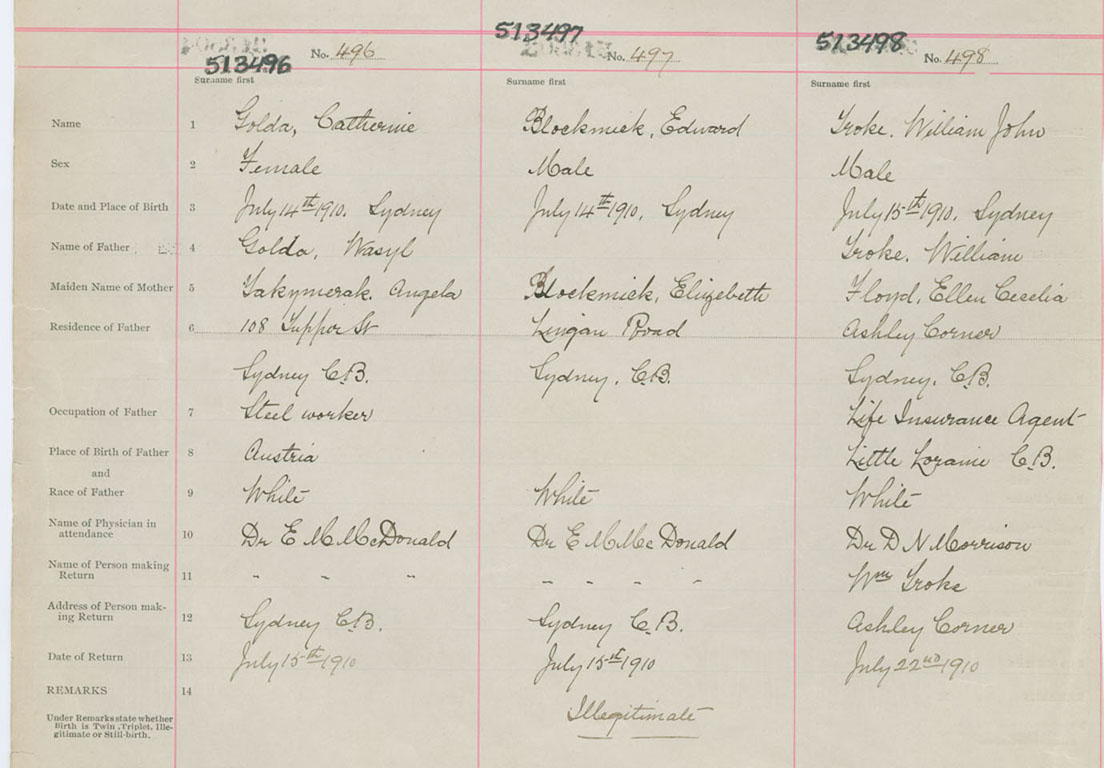 513496 No. 496 513497 No. 497 513498 No. 498
Surname first Surname first Surname first
Name 1 Golda, Catherine Blockmick, Edward Troke. William John
Sex 2 Female Male Male
Date and Place of Birth 3 July 14th 1910. Sydney July 14th 1910, Sydney July 15th 1910. Sydney
Name of Father 4 Golda, Wasyl Troke. William
Maiden Name of Mother 5 Yakymerak. Angela Blockmick, Elizebeth Floyd, Ellen Cecelia
Residence of Father 6 108 Tuppor St Lingan Road Ashley Corner
Sydney C.B. Sydney. C.B. Sydney. C.B.
Occupation of Father 7 Steel worker Life Insurance Agent
Place of Birth of Father 8 Austria Little Loraine C.B.
and
Race of Father 9 White White White
Name of Physician in
attendance 10 Dr E M McDonald Dr E M Mc Donald Dr D N Morrison
Name of Person making
Return 11 " " " " " " " Wm Troke
Address of Person mak-
ing Return 12 Sydney C.B. Sydney C.B. Ashley Corner
Date of Return 13 July 15th 1910 July 15th 1910 July 22nd 1910
REMARKS 14
Under Remarks state whether
Birth is Twin, Triplet, Ille-
gitimate or Still-birth.
Illegitimate